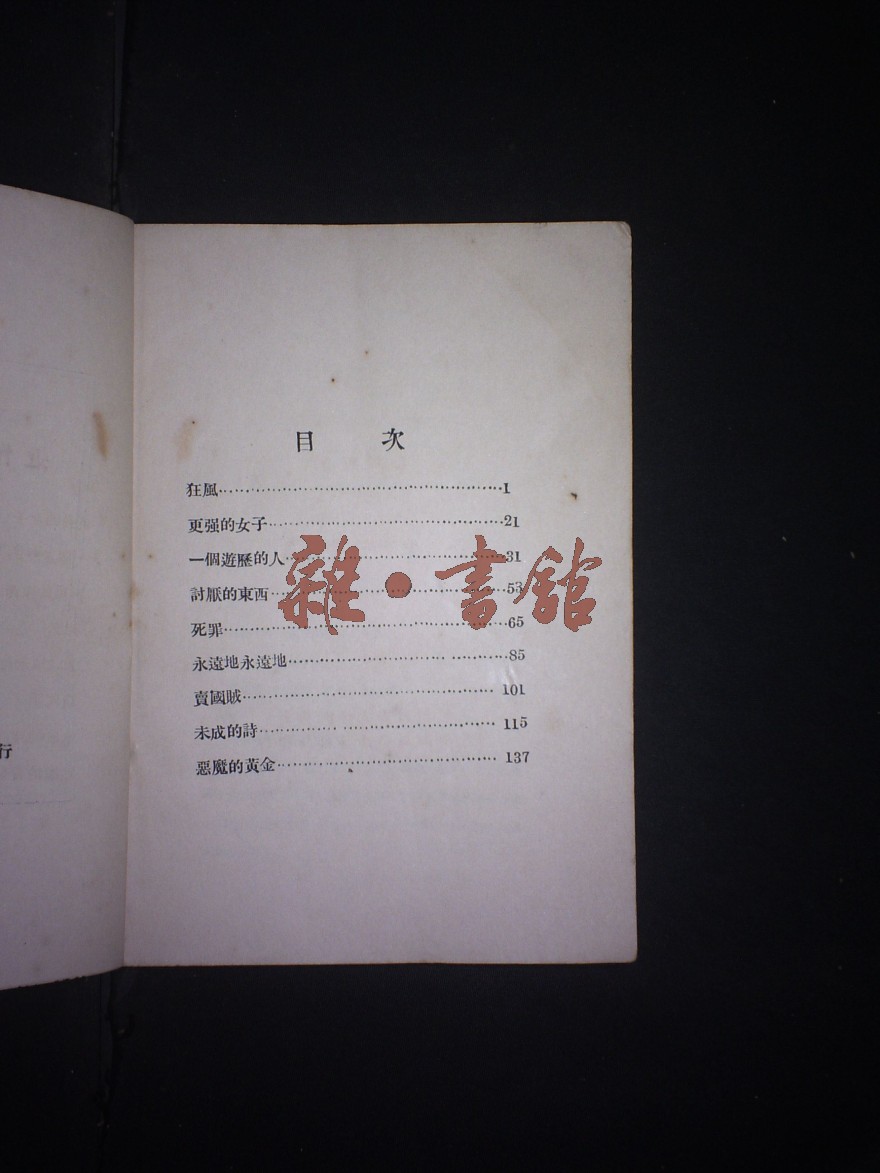 目 次
狂風……1
更强的女子……21
一個遊歷的人……31
討厭的東西……53
死罪……65
永遠地永遠地……85
賣國賊……101
未成的詩……115
惡魔的黃金……137
雜·書館
行